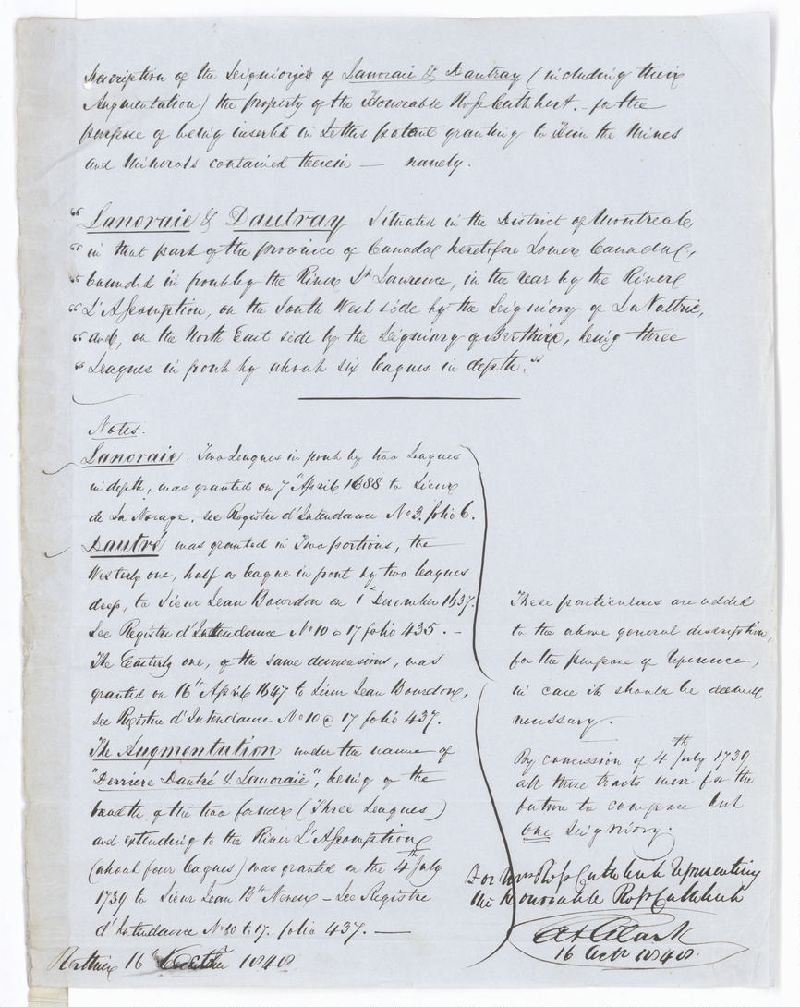 Description of the Seigniories of Lanoraie & Dautray (including their
Augmentation) the property of the Honourable Ross Cuthbert. for the
purpose of being inserted in Letters patent granting to him the Mines
and Minerals contained therein — namely.
"Lanoraie & Dautray Situated in the District of Montreal
" in that part of the province of Canada heretofore Lower Canada,
" bounded in front by the River St Lawrence, in the rear by the River
" L'Assomption, on the South West side by the Seigniory of LaValtrie,
" and, on the North East side by the Seigniory of Berthier, being three
" Leagues in front by about six leagues in depth."
Notes.
Lanoraie Two Leagues in front by two Leagues
in depth, was granted on 7th April 1688 to Sieur
de La Noraye. see Registre d'Intendance No 3. folio 6.
Dautré was granted in Two portions, the
Westerly one, half a league in front by two leagues
deep, to Sieur Jean Bourdon on 1st December 1637.
See Registre d'Intendance No 10 a 17 folio 435. –
The Easterly one, of the same dimensions, was
granted on 16th April 1647 to Sieur Jean Bourdon,
see Registre d'Intendance No 10 @ 17 folio 437.
The Augmentation under the name of
"Derriere Dautré & Lanoraie", being of the
breadth of the two former (Three Leagues)
and extending to the River L'Assomption
(about four leagues) was granted on the 4th July
1739 to Sieur Jean Bte Neveu – See Registre
d'Intendance No 10 to 17. folio 437. —
These particulars are added
to the above general description,
for the purpose of reference,
in case it should be deemed
necessary.
By commission of 4th July 1739
all three tracts were for the
future to compose but
one Seigniory.
For Wm Ross Cuthbert representing
the Honourable Ross Cuthbert
16 Octr 1848
Berthier 16 1848